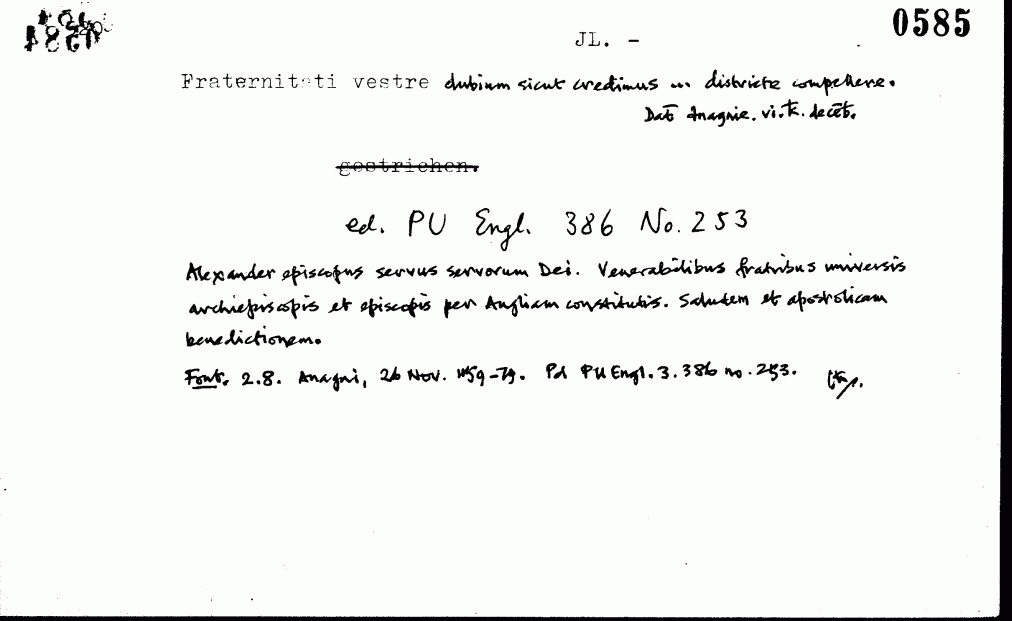 0585
JL. -
Fraternitati vestre dubium sicut credimus ... districte compellere.
Dat Anagnie. vi. k. deceb.
gestrichen.
ed. PU Engl. 386 No. 253
Alexander episcopus servus servorum Dei. Venerabilibus fratribus universis
archiepiscopis et episcopis per Angliam constitutis. Salutem et apostolicam
benedictionem.
Font. 2.8. Anagni, 26 Nov. 1159-79. Pd PU Engl. 3. 386 no. 253.